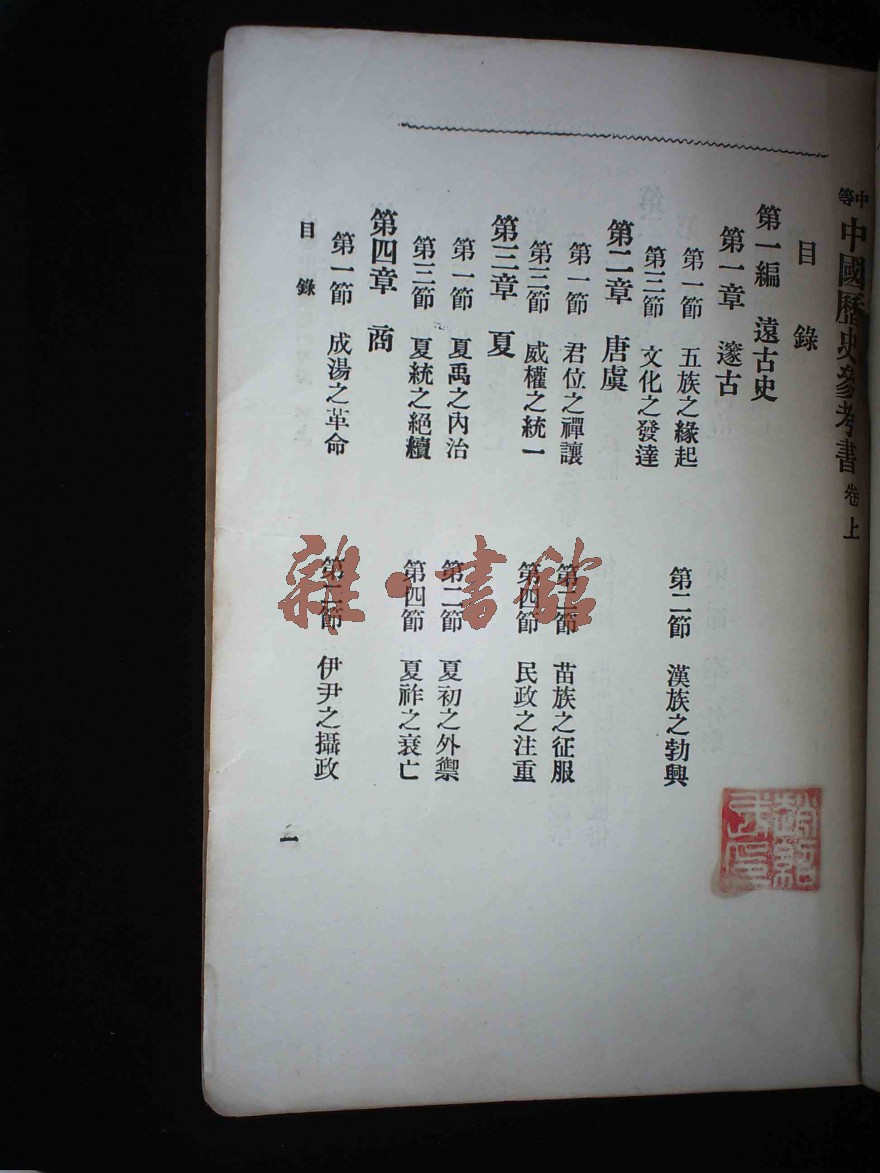 中等中國歷史參考書 卷上
目錄
第一編 遠古史
第一章 邃古
第一節 五族之緣起 第二節 漢族之勃興
第三節 文化之發達
第二章 唐虞
第一節 君位之禪讓 第二節 苗族之征服
第三節 威權之統一 第四節 民政之注重
第三章 夏
第一節 夏禹之內治 第二節 夏初之外禦
第三節 夏統之絕續 第四節 夏祚之衰亡
第四章 商
第一節 成湯之革命 第二節 伊尹之攝政
目錄 一
雜·書館